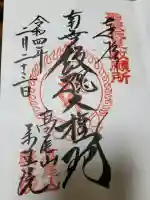 奉拝
南無飯縄大権現
高尾山
薬王院
令和四年
二月二十三日